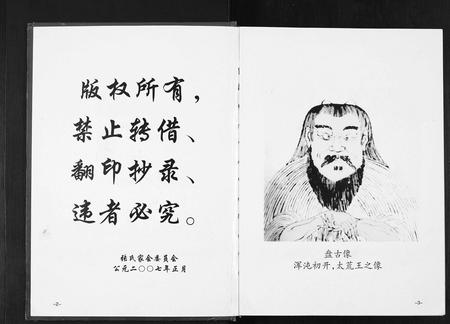 版权所有，
禁止转借、
翻印抄录、
违者必究。
张氏家会委员会
公元二〇〇七年正月
-2-
盘古像
浑沌初开，太荒王之像
-3-